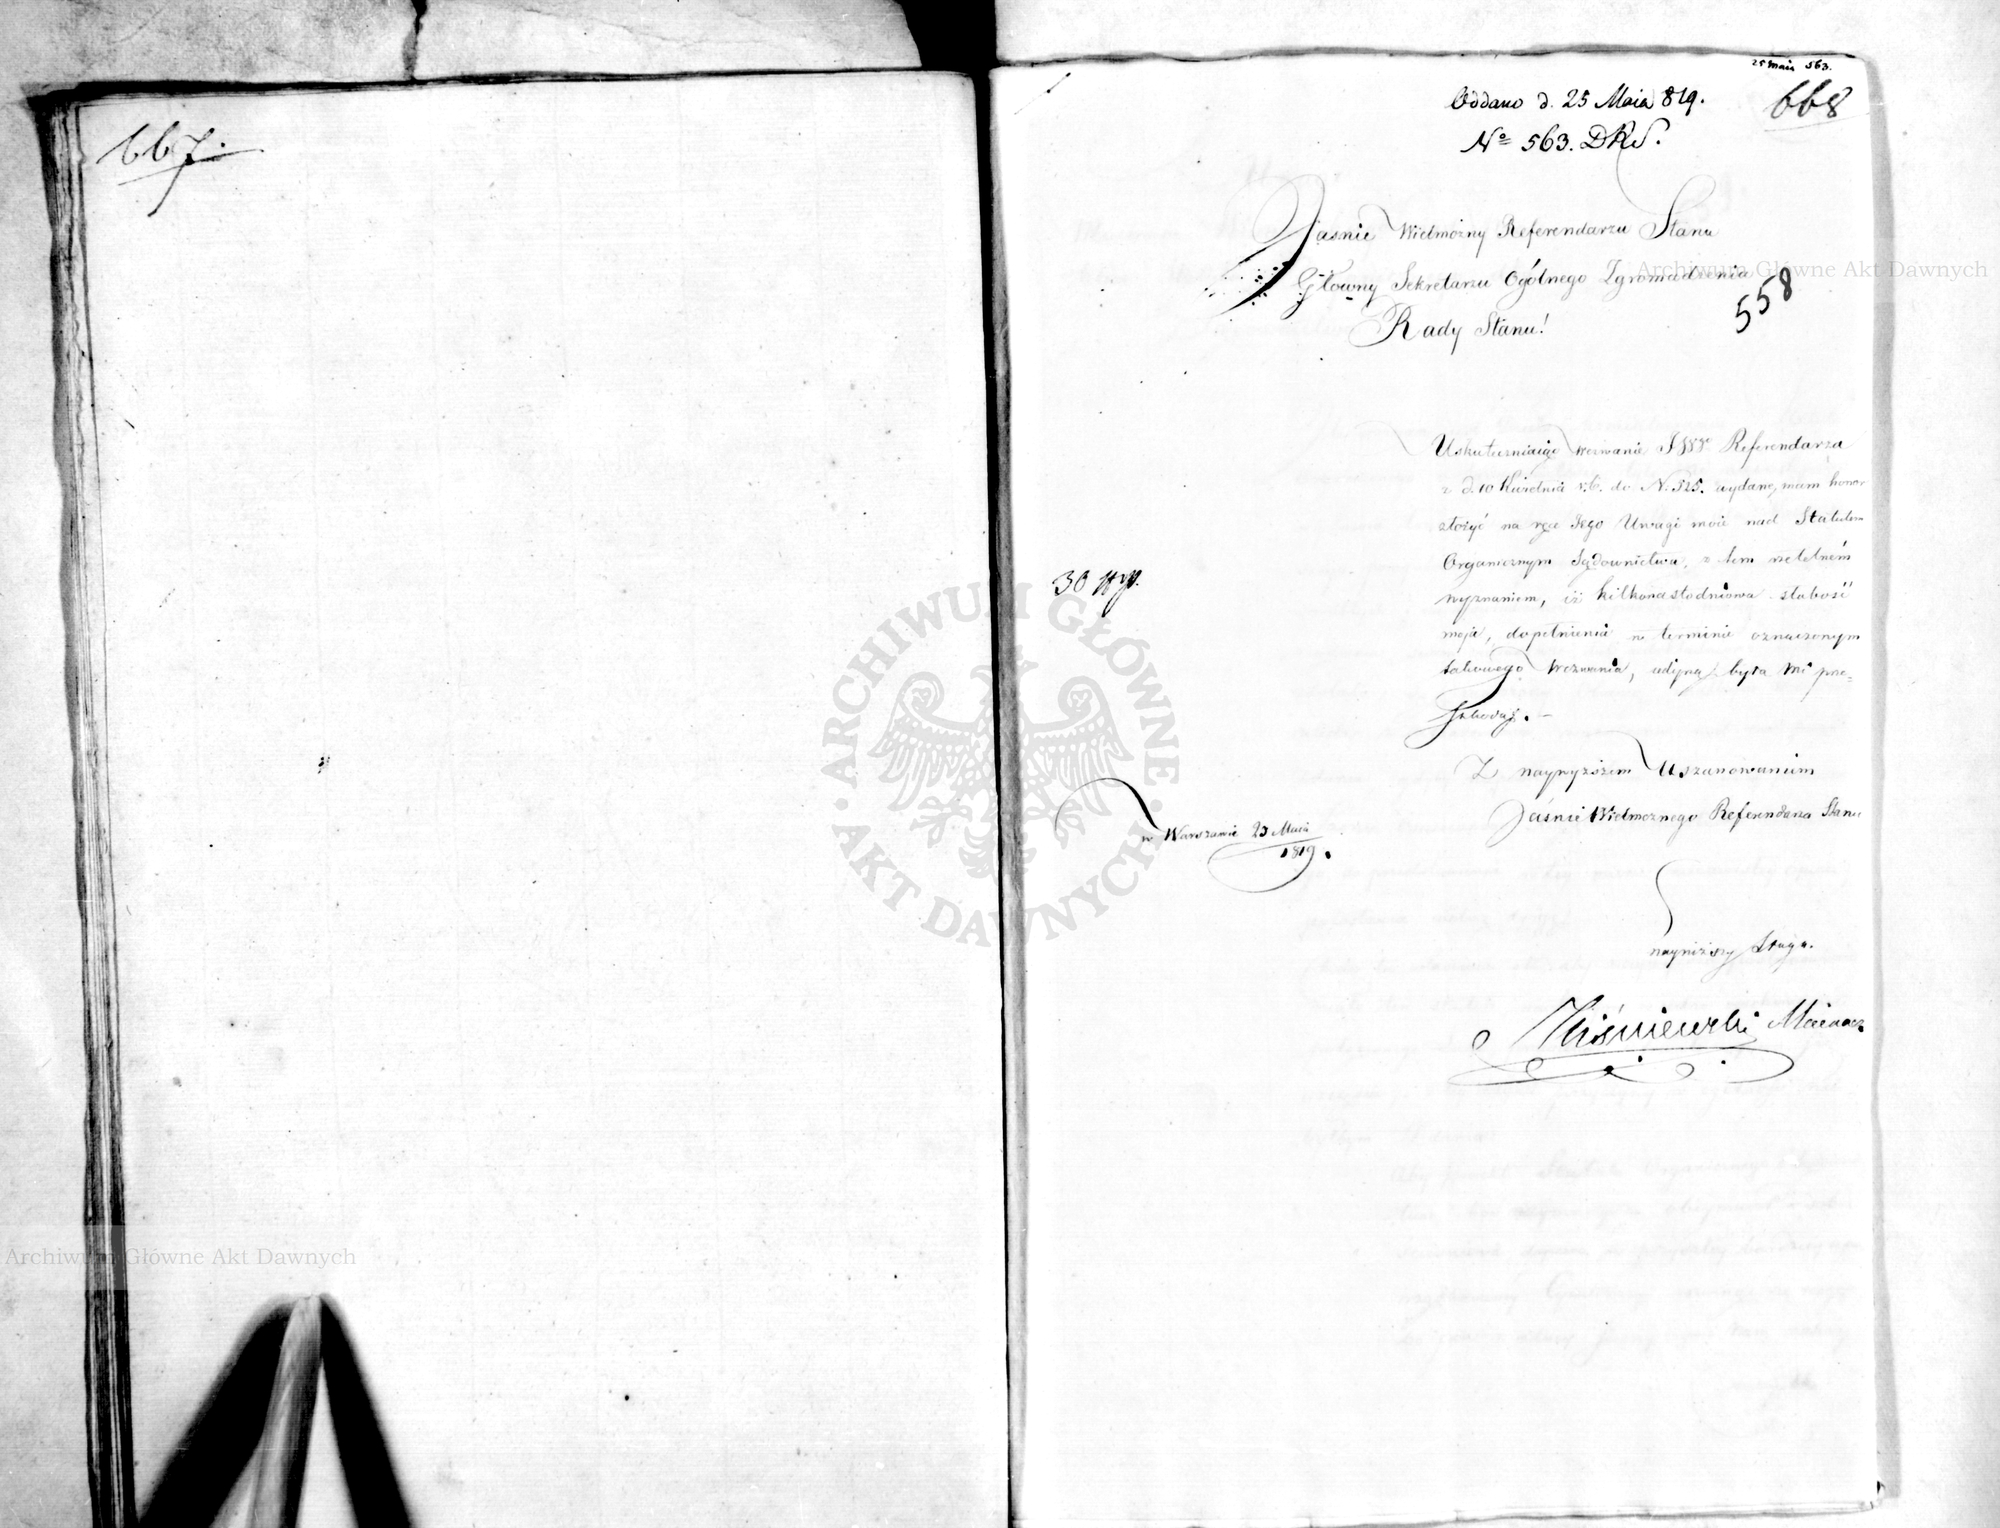 667.
25 Maia 563.
Oddano d. 25 Maia 819.
668
No 563. DRS.
Jaśnie Wielmożny Referendarzu Stanu
Główny Sekretarzu Ogólnego Zgromadzenia
558
Rady Stanu!
Uskuteczniaiąc wezwanie JWW Referendarza
z d. 10 Kwietnia r. b. do N. 525. wydane, mam honor
złożyć na ręce Jego Uwagi moie nad Statutem
Organicznym Sądownictwa, z tem rzetelném
wyznaniem, iż kilkonastodniowa słabość
moja, dopełnienia w terminie oznaczonym
takowego Wezwania, iedyną była mi prze-
szkodą. —
30
Z naywyższem Uszanowaniem
Jaśnie Wielmożnego Referendarza Stanu
w Warszawie 25 Maia
1819.
nayniższy Sługa.
Wiśniewski
Archiwum Główne Akt Dawnych
Archiwum Główne Akt Dawnych
ARCHIWUM GŁÓWNE · AKT DAWNYCH ·